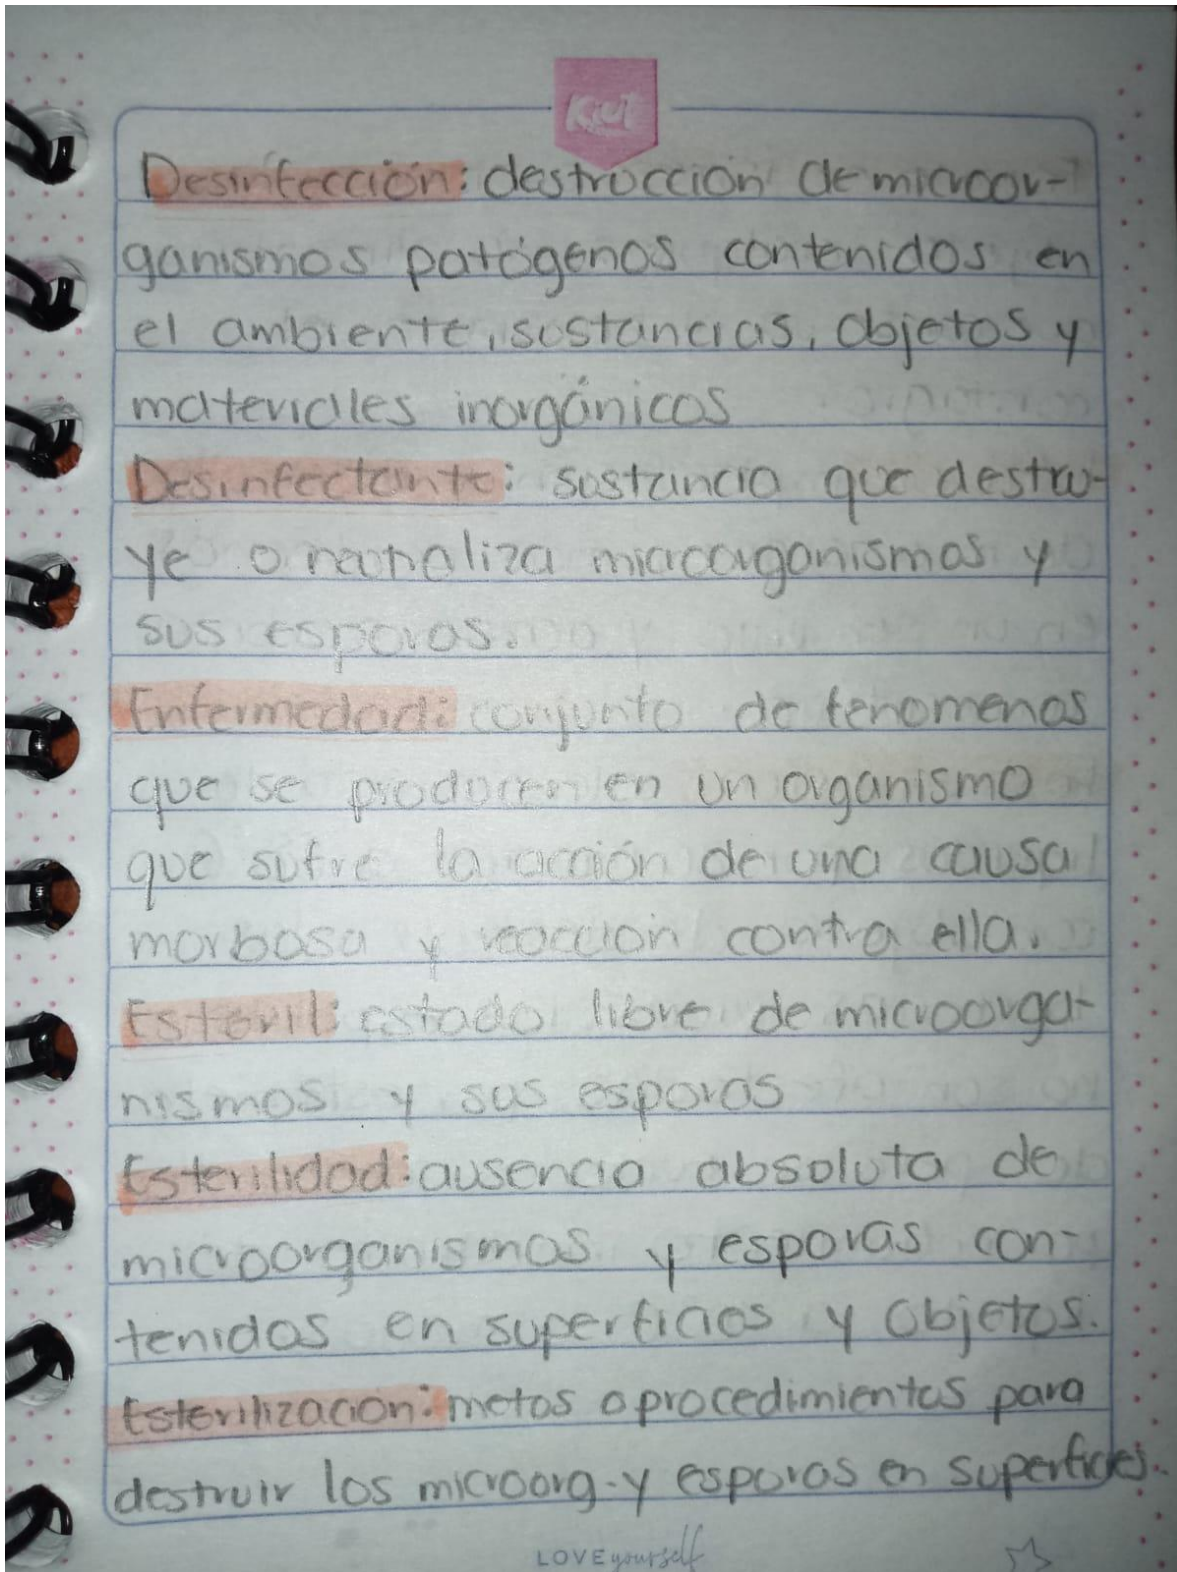 Kiut
Desinfección: destrucción de microor-
ganismos patógenos contenidos en
el ambiente, sustancias, objetos y
materiales inorgánicos
Desinfectante: sustancia que destru-
ye o neutraliza microorganismos y
sus esporas.
Enfermedad: conjunto de fenomenos
que se producen en un organismo
que sufre la acción de una causa
morbosa y reaccion contra ella.
Esteril: estado libre de microorga-
nismos y sus esporas
Esterilidad: ausencia absoluta de
microorganismos y esporas con-
tenidos en superficies y objetos.
Esterilización: metos o procedimientos para
destruir los microorg. y esporas en superficies.
LOVE yourself